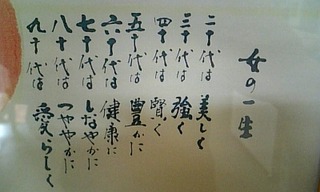 女の一生
二十代は 美しく
三十代は 強く
四十代は 賢く
五十代は 豊かに
六十代は 健康に
七十代は しなやかに
八十代は つややかに
九十代は 愛らしく